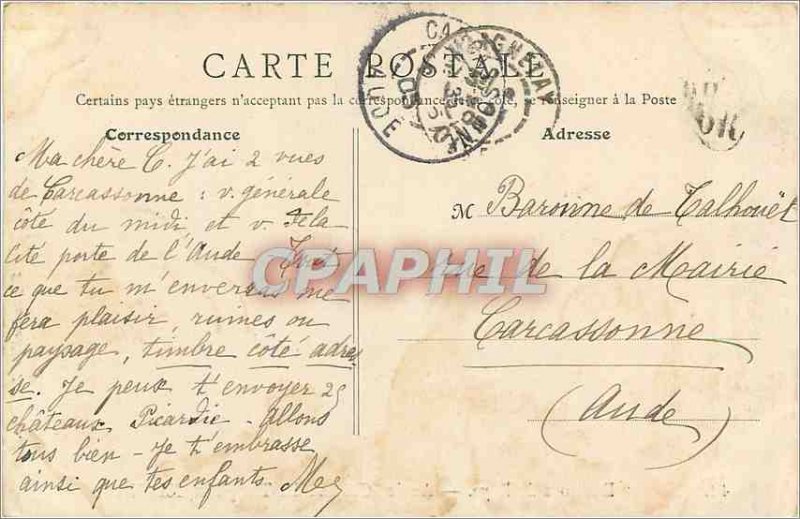 CARTE POSTALE
Certains pays étrangers n'acceptant pas la correspondance de ce côté, se renseigner à la Poste
Correspondance
Ma chère C. J'ai 2 vues
de Carcassonne : v. générale
côté du midi, et v. de la
cité porte de l'Aude Tout
ce que tu m'enverras me
fera plaisir, ruines ou
paysage, timbre côté adres
se. Je peux t'envoyer 25
châteaux Picardie - Allons
tous bien - Je t'embrasse
ainsi que tes enfants.
Adresse
M Baronne de Talhouët
rue de la Mairie
Carcassonne
(Aude)
CPAPHIL
AUDE
OR